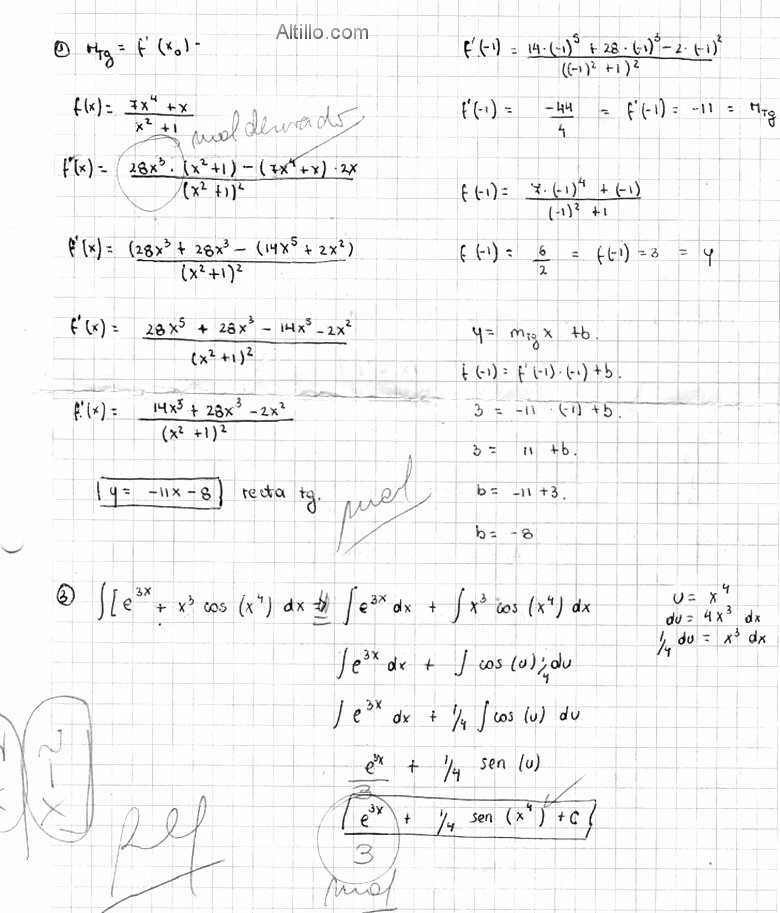 Altillo.com
① m_Tg = f'(x₀) -
f(x) = (7x⁴ + x) / (x² + 1)
mal derivado
f'(x) = (28x³ · (x² + 1) - (7x⁴ + x) · 2x) / (x² + 1)²
f'(x) = (28x³ + 28x³ - (14x⁵ + 2x²) / (x² + 1)²
f'(x) = (28x⁵ + 28x³ - 14x⁵ - 2x²) / (x² + 1)²
f'(x) = (14x⁵ + 28x³ - 2x²) / (x² + 1)²
y = -11x - 8 recta tg.
mal
f'(-1) = (14·(-1)⁵ + 28·(-1)³ - 2·(-1)²) / ((-1)² + 1)²
f'(-1) = -44/4 = f'(-1) = -11 = m_Tg
f(-1) = (7·(-1)⁴ + (-1)) / ((-1)² + 1)
f(-1) = 6/2 = f(-1) = 3 = y
y = m_Tg x + b.
f(-1) = f'(-1)·(-1) + b.
3 = -11 · (-1) + b.
3 = 11 + b.
b = -11 + 3.
b = -8
③ ∫[e^3x + x³ cos (x⁴) dx = ∫e^3x dx + ∫x³ cos (x⁴) dx
u = x⁴
du = 4x³ dx
1/4 du = x³ dx
∫e^3x dx + ∫ cos (u) 1/4 du
∫e^3x dx + 1/4 ∫cos (u) du
e^3x / 3 + 1/4 sen (u)
e^3x / 3 + 1/4 sen (x⁴) + C
mal